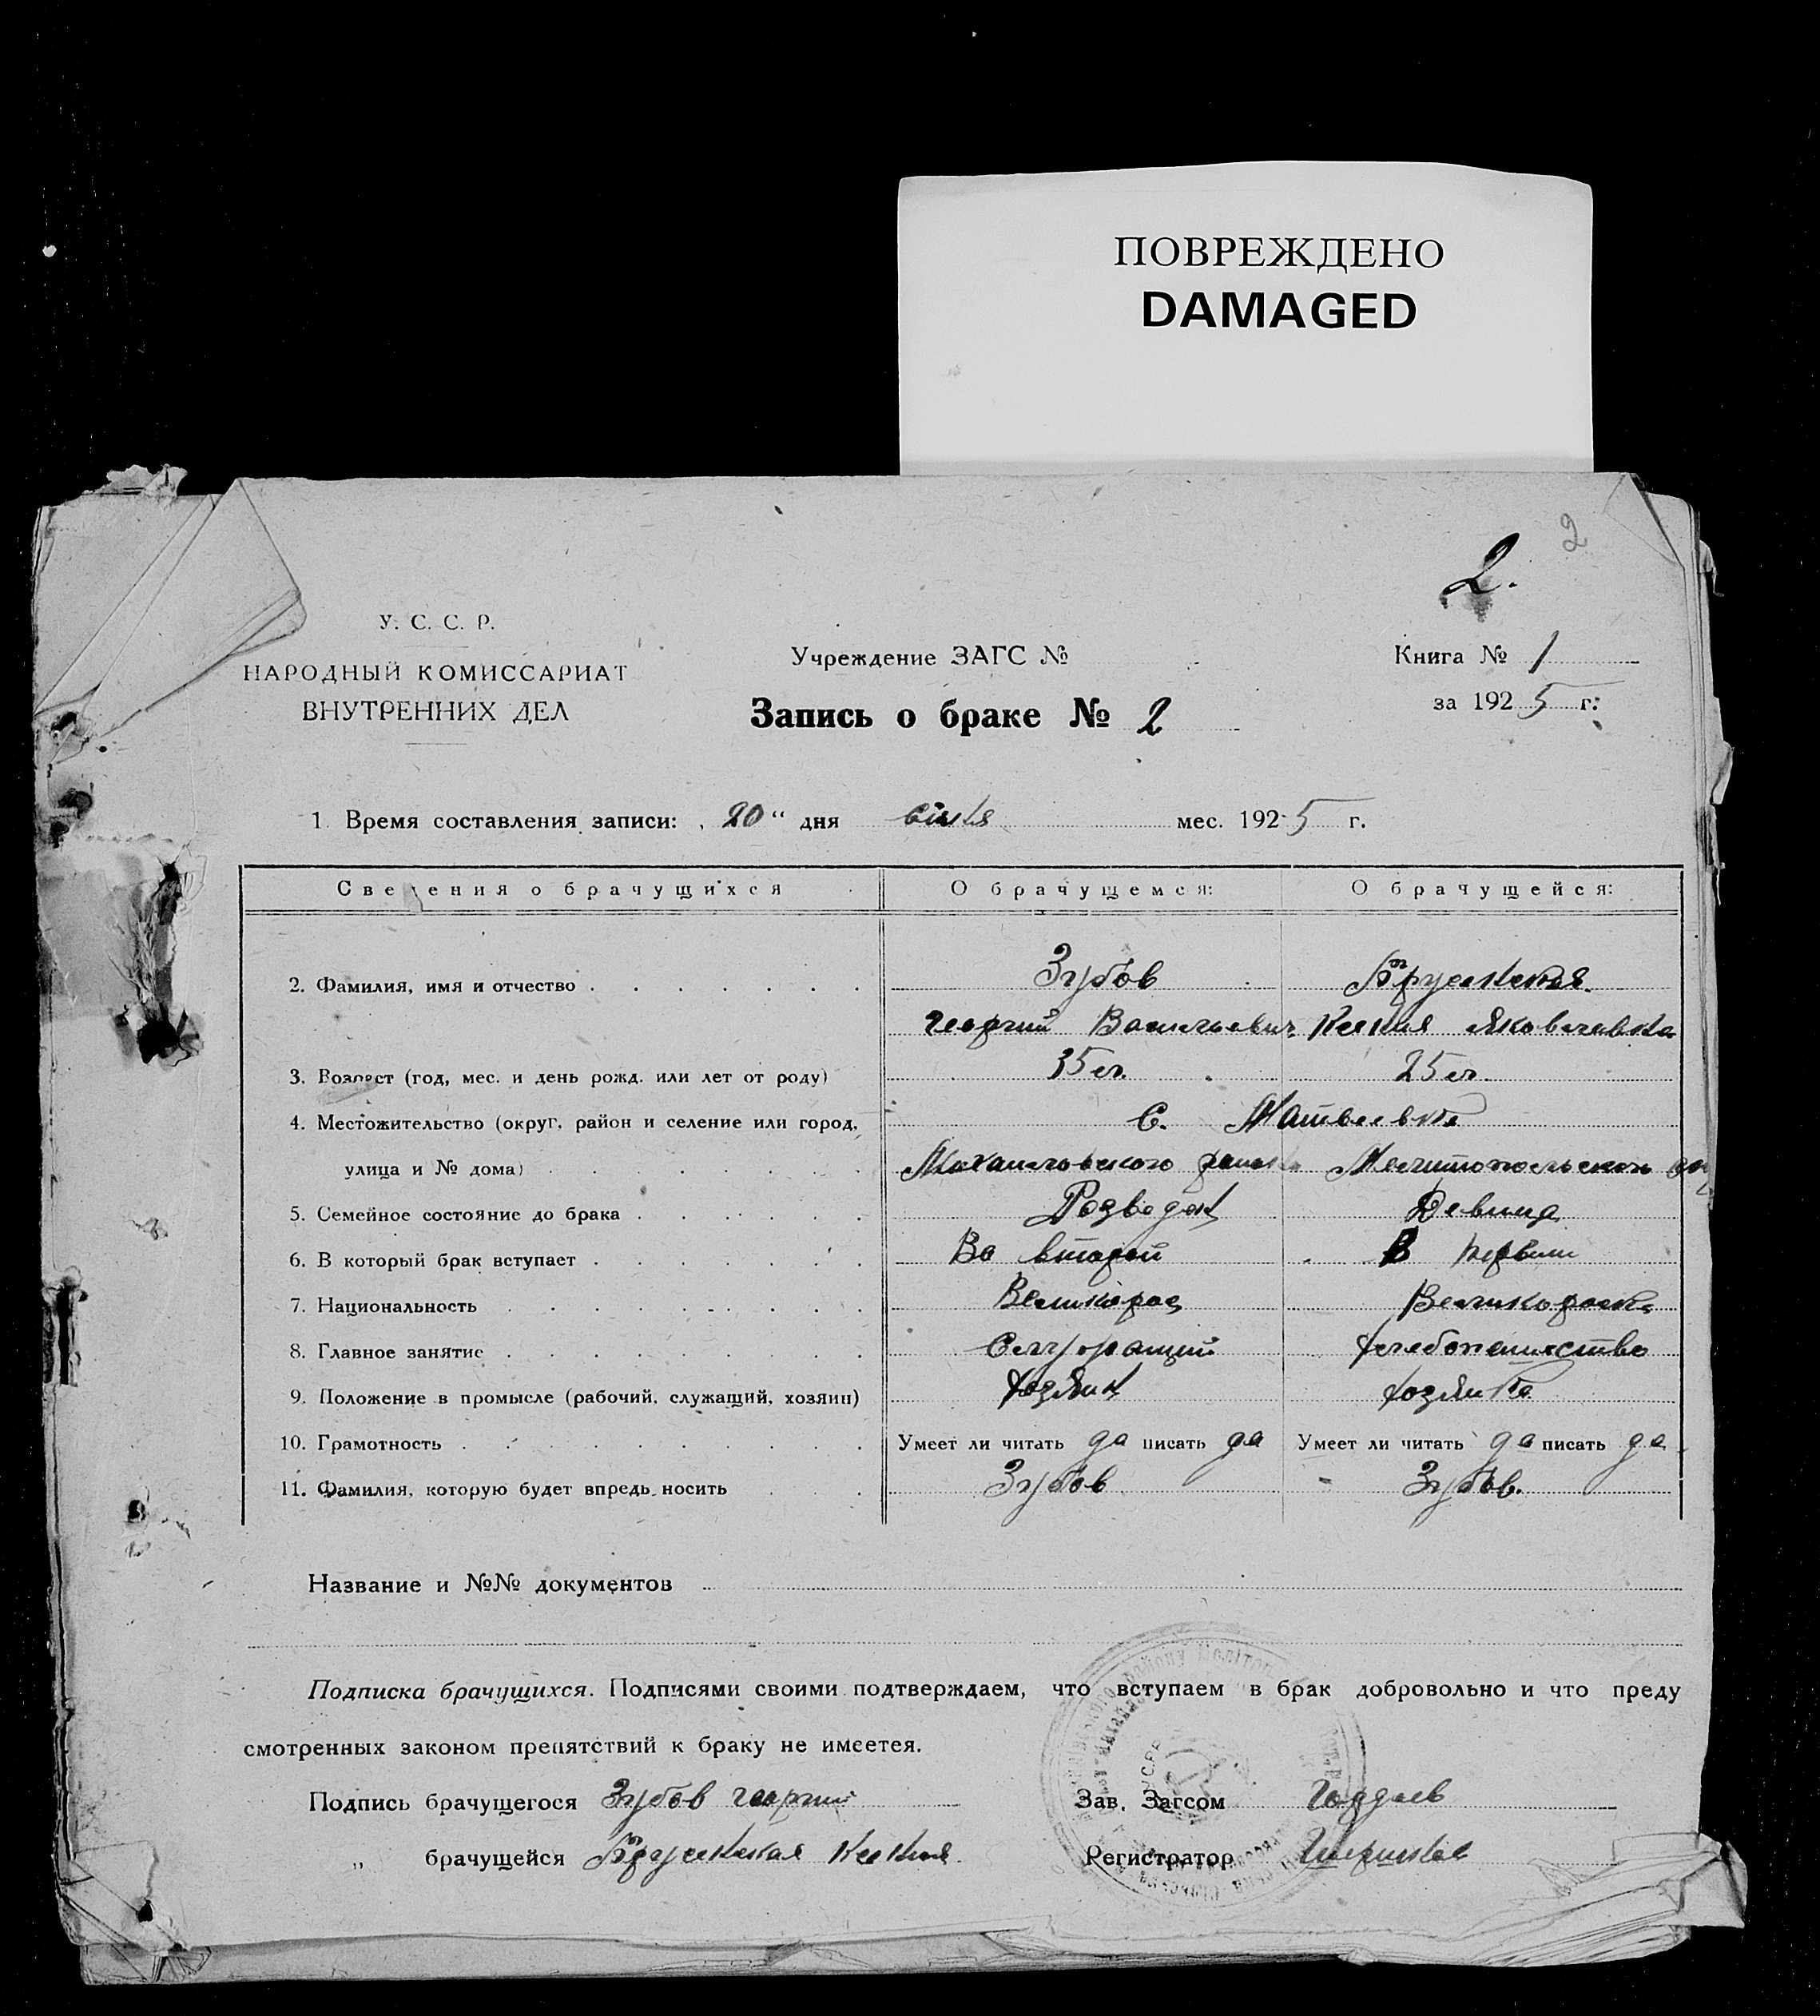 ПОВРЕЖДЕНО
DAMAGED
2
2.
У. С. С. Р.
НАРОДНЫЙ КОМИССАРИАТ
ВНУТРЕННИХ ДЕЛ
Учреждение ЗАГС №
Запись о браке № 2
Книга № 1
за 1925 г.
1. Время составления записи: „20“ дня січня мес. 1925 г.
Сведения о брачущихся О брачущемся: О брачущейся:
2. Фамилия, имя и отчество Зубов
Георгий Васильевич Ксения Яковлевна
3. Возраст (год, мес. и день рожд. или лет от роду) 35 л. 25 л.
4. Местожительство (округ, район и селение или город, С. Матвеевка
улица и № дома) Михайловского района Мелитопольского
5. Семейное состояние до брака Розведен Девица
6. В который брак вступает Во второй В первый
7. Национальность Великорос Великороска
8. Главное занятие Служащий Хлебопашество
9. Положение в промысле (рабочий, служащий, хозяин) Хозяин хозяйка
10. Грамотность Умеет ли читать да писать да Умеет ли читать да писать да
11. Фамилия, которую будет впредь носить Зубов Зубов.
Название и №№ документов
Подписка брачущихся. Подписями своими подтверждаем, что вступаем в брак добровольно и что преду
смотренных законом препятствий к браку не имеется.
Подпись брачущегося Зубов Георгий Зав. Загсом
„ брачущейся Ксения Регистратор